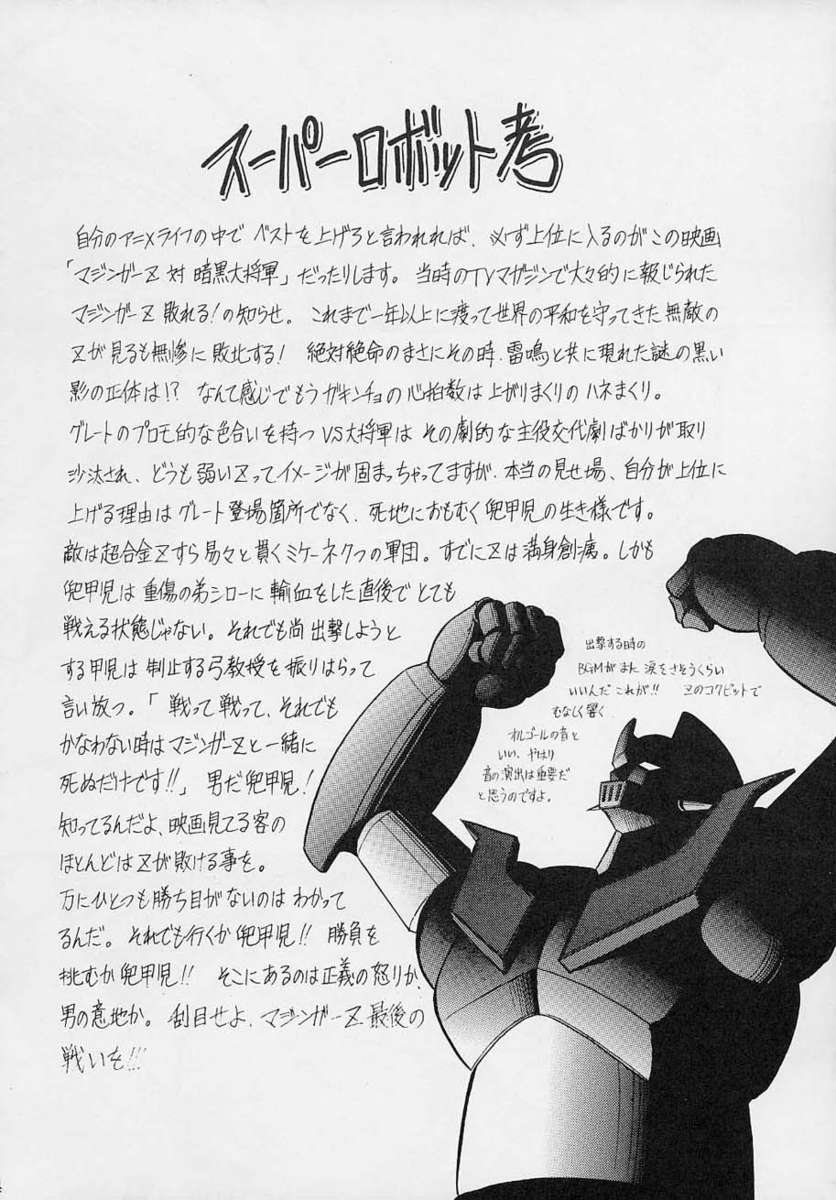 スーパーロボット考
自分のアニメライフの中で ベストを上げろと言われれば、必ず上位に入るのがこの映画
「マジンガーZ 対 暗黒大将軍」だったりします。当時のTVマガジンで大々的に報じられた
マジンガーZ 敗れる!の知らせ。これまで一年以上に渡って世界の平和を守ってきた無敵の
Zが見るも無惨に敗北する! 絶対絶命のまさにその時、雷鳴と共に現れた謎の黒い
影の正体は!? なんて感じでもうガキンチョの心拍数は上がりまくりのハネまくり。
グレートのプロモ的な色合いを持つ VS大将軍は その劇的な主役交代劇ばかりが取り
沙汰され、どうも弱いZってイメージが固まっちゃってますが、本当の見せ場、自分が上位に
上げる理由はグレート登場箇所でなく、死地におもむく兜甲児の生き様です。
敵は超合金Zすら易々と貫くミケーネ7つの軍団。すでにZは満身創痍。しかも
兜甲児は 重傷の弟シローに 輸血をした直後で とても
戦える状態じゃない。それでも尚 出撃しようと
する甲児は 制止する弓教授を 振りはらって
言い放つ。「戦って戦って、それでも
かなわない時はマジンガーZと一緒に
死ぬだけです!!」男だ兜甲児!
知ってるんだよ、映画見てる客の
ほとんどは Zが敗ける事を。
万にひとつも勝ち目がないのは わかって
るんだ。それでも行くか兜甲児!! 勝負を
挑むか兜甲児!! そこにあるのは正義の怒りか、
男の意地か。刮目せよ、マジンガーZ 最後の
戦いを!!!
出撃する時の
BGMがまた 涙をさそうくらい
いいんだ これが!! Zのコクピットで
むなしく響く
オルゴールの音と
いい、やはり
音の演出は重要だ
と思うのですよ。